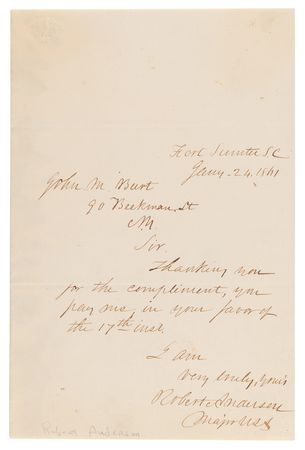 Fort Sumter S.C
Jany. 24, 1861
John M. Burt
90 Beekman St
N.Y.
Sir.
Thanking you
for the compliment, you
pay me in your favor of
the 17th inst.
I am
very truly, yours
Robert Anderson
Major USA
Robert Anderson